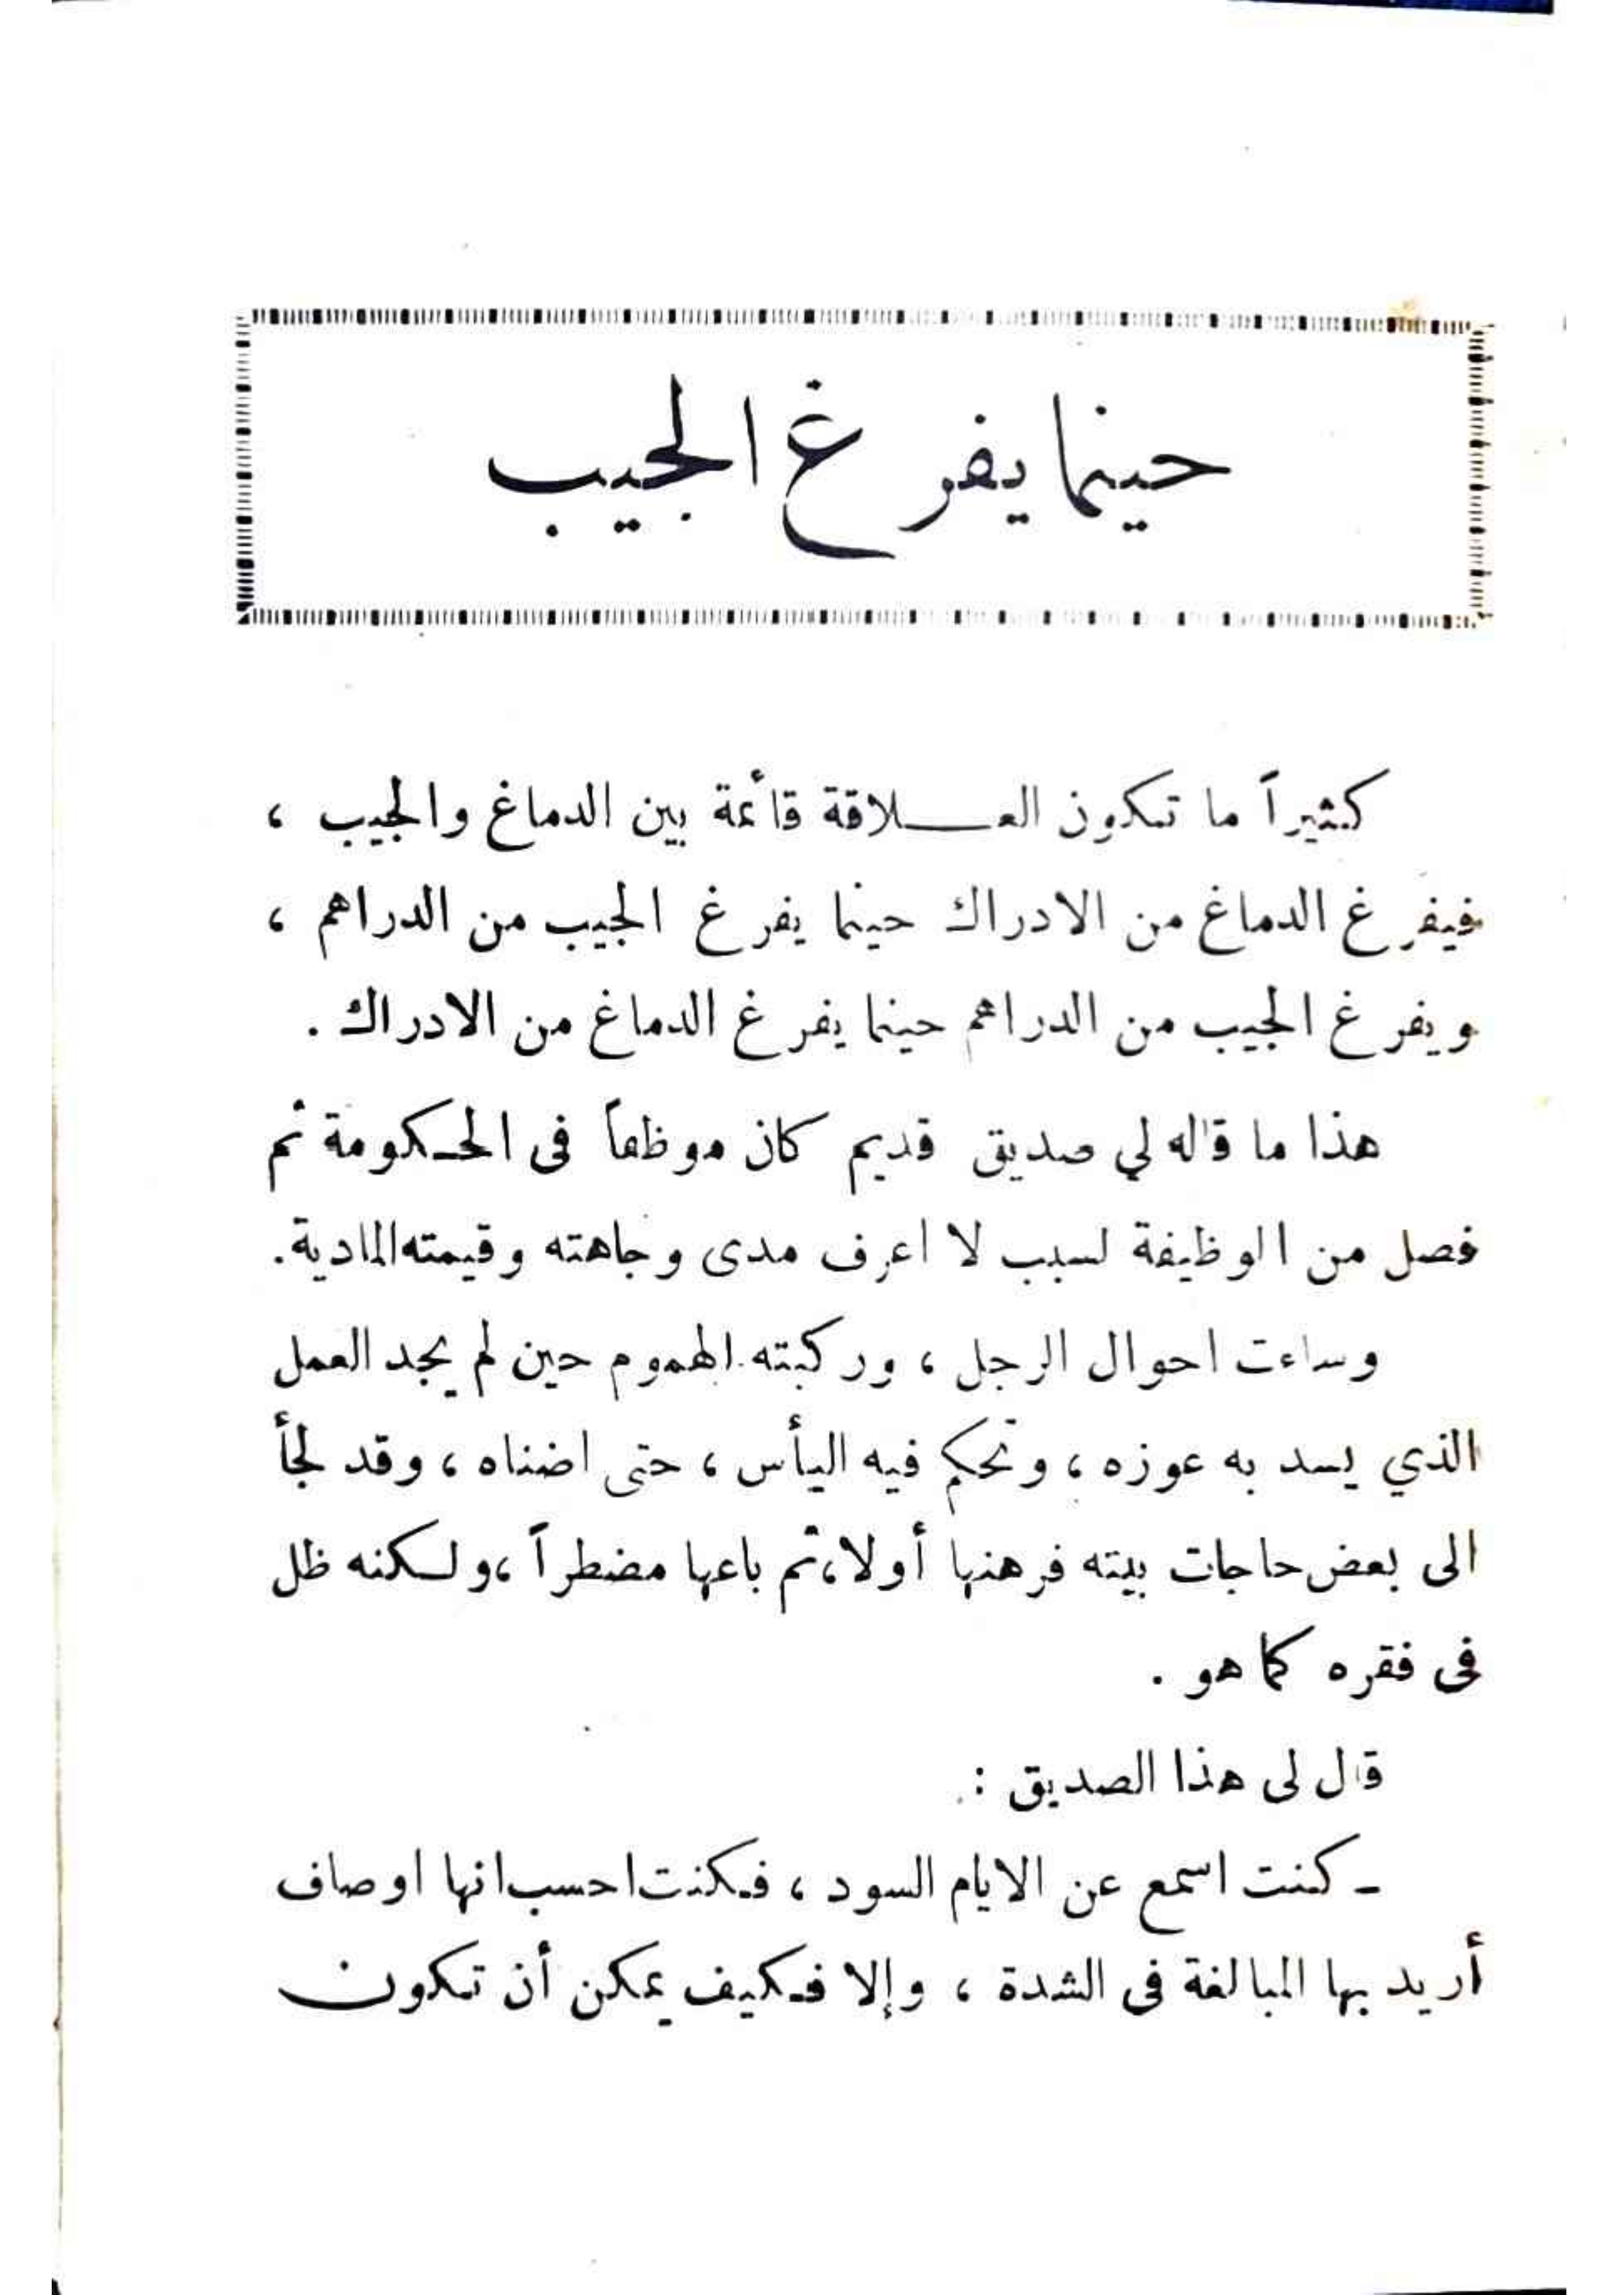 حينما يفرغ الجيب
كثيراً ما تكون العـــلاقة قائمة بين الدماغ والجيب ،
فيفرغ الدماغ من الادراك حينما يفرغ الجيب من الدراهم ،
ويفرغ الجيب من الدراهم حينما يفرغ الدماغ من الادراك .
هذا ما قاله لي صديق قديم كان موظفاً فى الحكومة ثم
فصل من الوظيفة لسبب لا اعرف مدى وجاهته وقيمته المادية .
وساءت احوال الرجل ، وركبته الهموم حين لم يجد العمل
الذي يسد به عوزه ، وتحكم فيه اليأس ، حتى اضناه ، وقد لجأ
الى بعض حاجات بيته فرهنها أولا، ثم باعها مضطراً ، ولكنه ظل
فى فقره كما هو .
قال لى هذا الصديق :
- كنت اسمع عن الايام السود ، فكنت احسب انها اوصاف
أريد بها المبالغة فى الشدة ، وإلا فكيف يمكن أن تكون